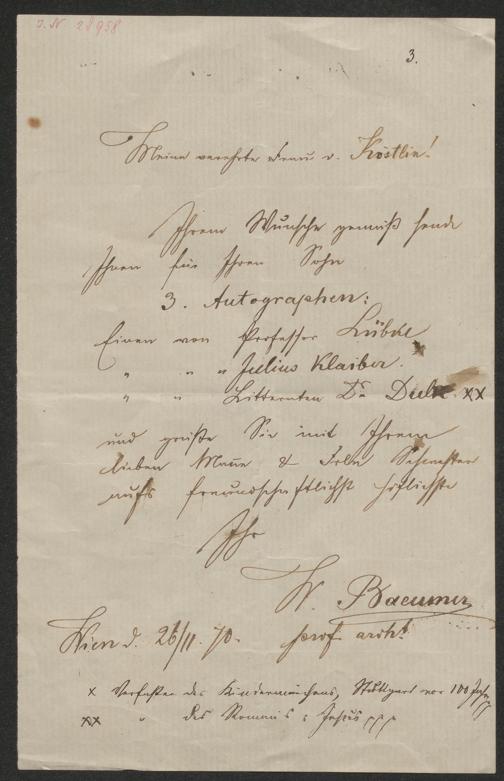 J. N 28958
3.
Meine verehrte Frau v. Köstlin!
Ihrem Wunsche gemäß sende
Ihnen für Ihren Sohn
3. Autographen:
Einen von Professor Lübke
" " " Julius Klaiber. x
" " Litteraten Dr Dulk xx
und grüße Sie mit Ihrem
lieben Mann & Frln Schwester
aufs freundschaftlichst höflichste
Ihr
W. Baeumer
Wien d. 26/11. 70. prof. archt
x Verfasser des Kindermärchens, Stuttgart vor 100 Jahr
xx " des Romans : Jesus